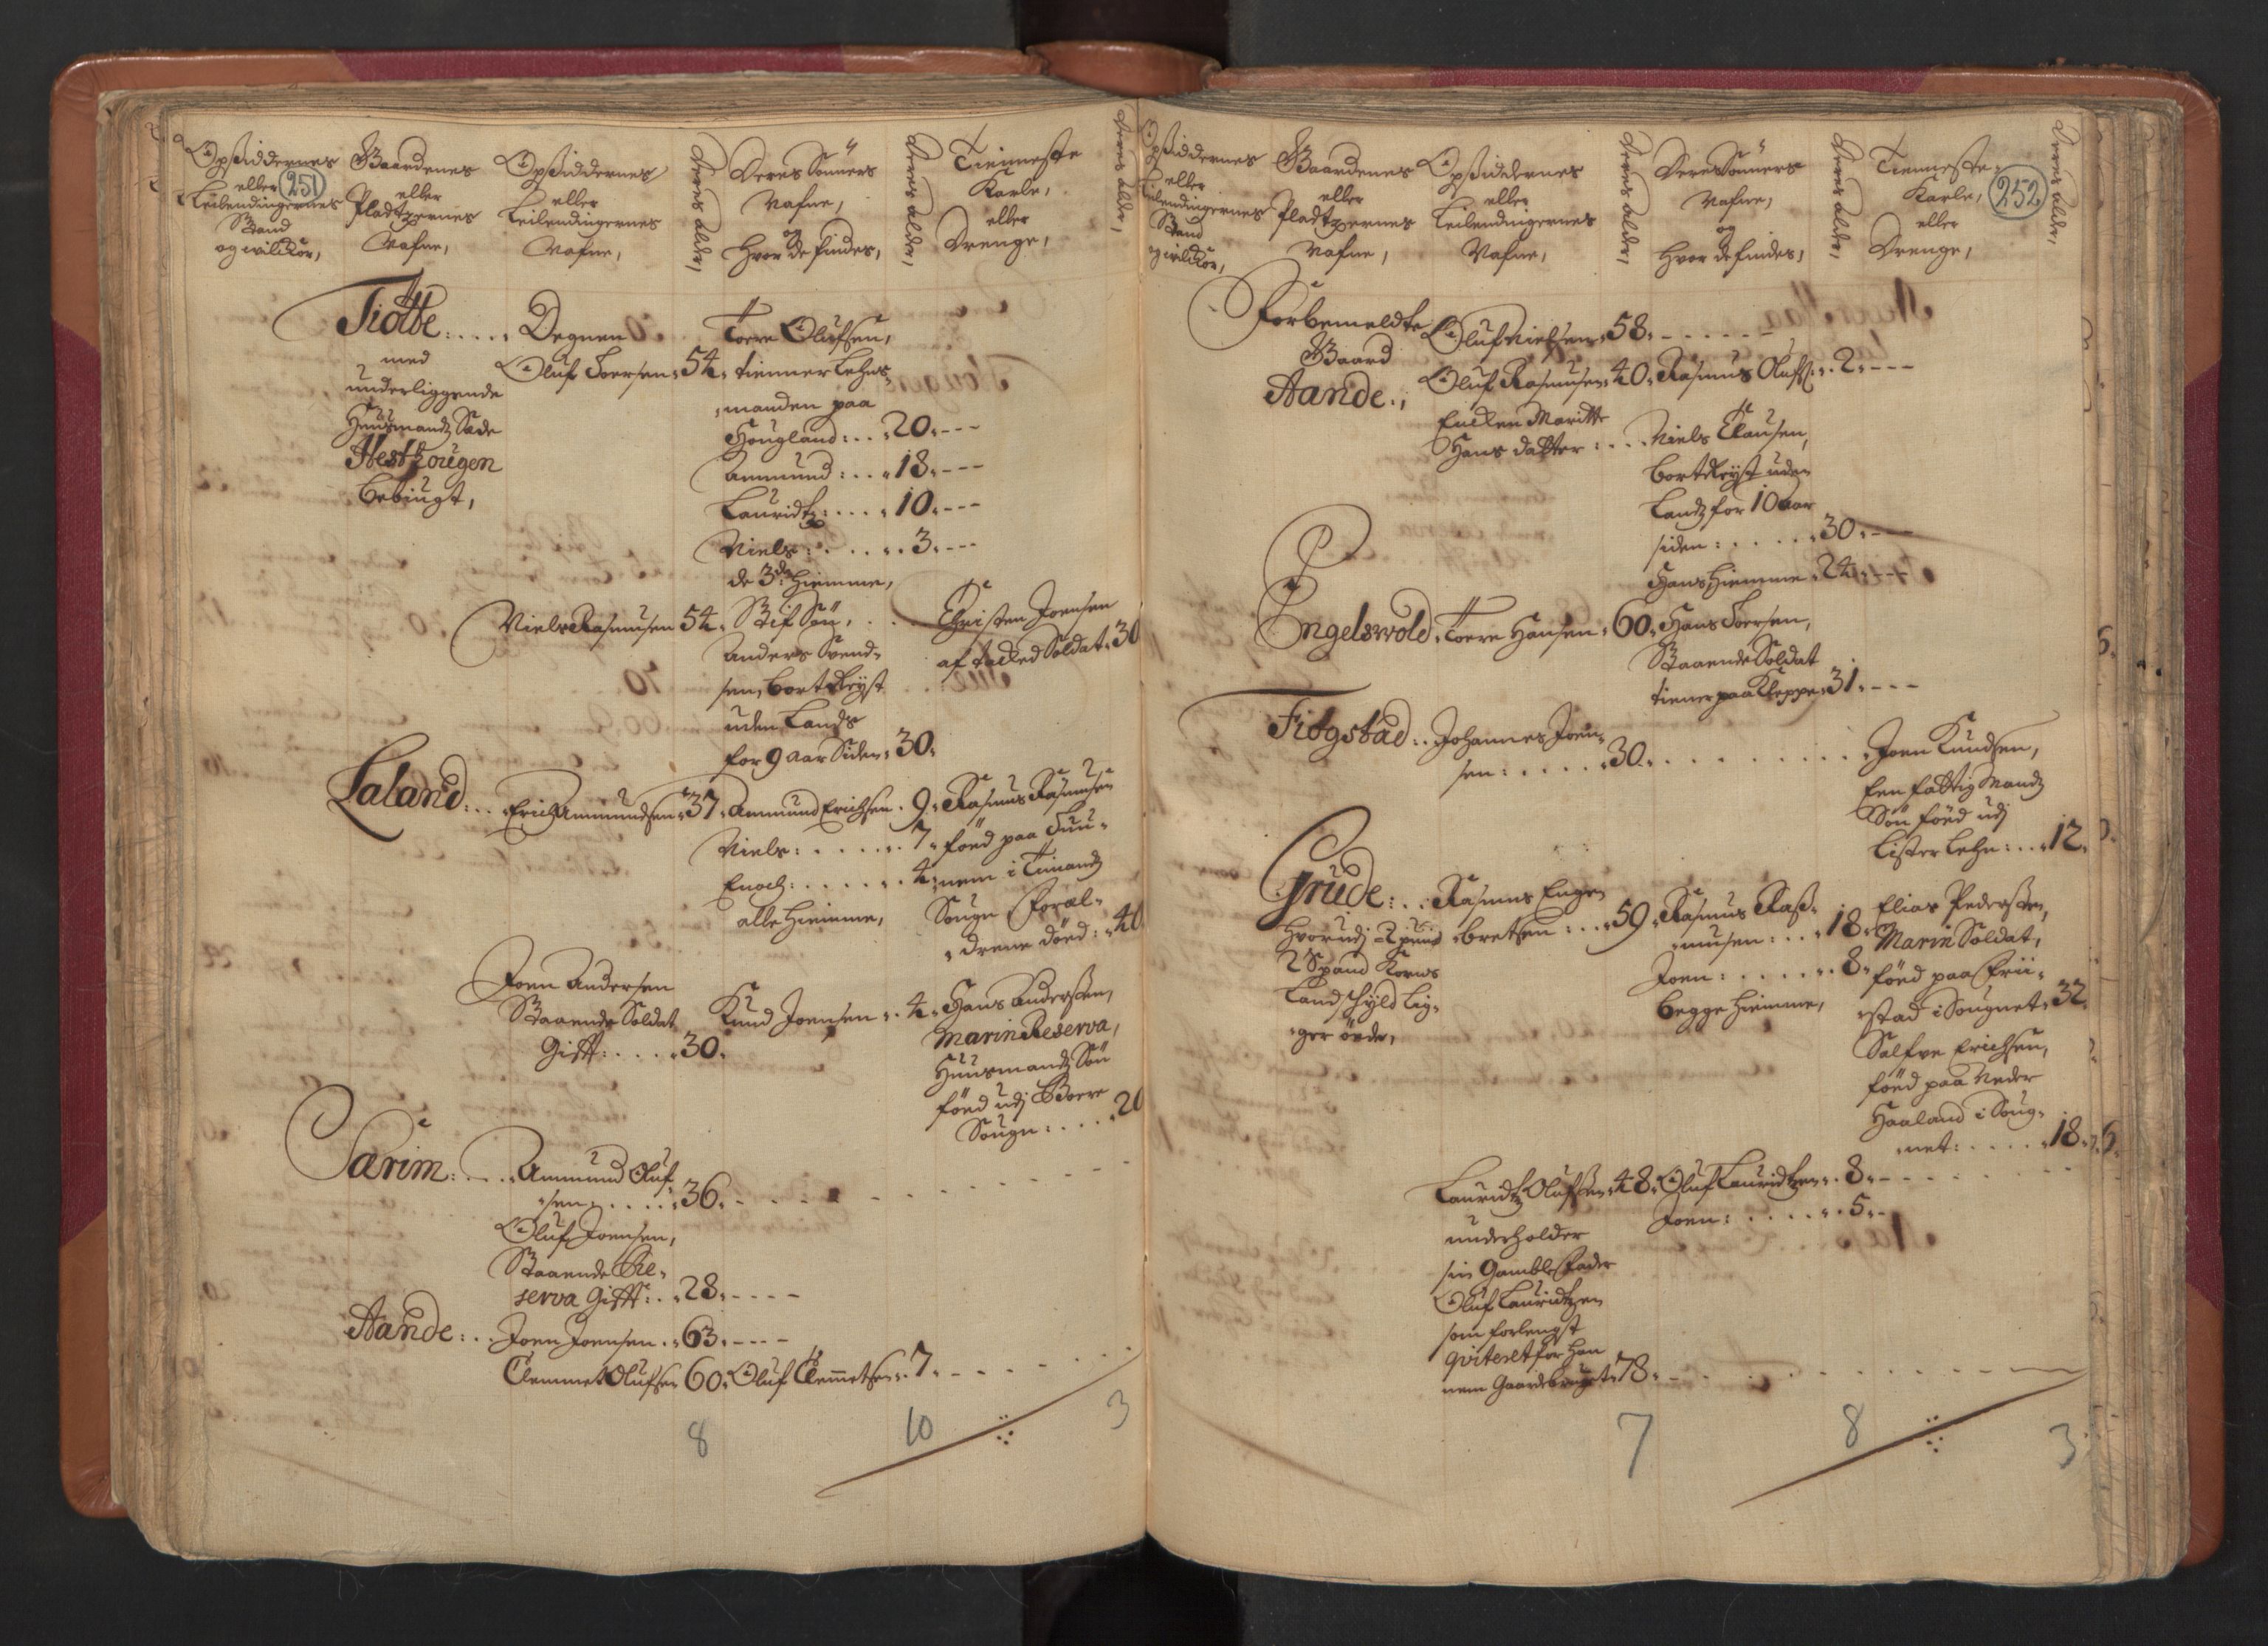 251
Opsiddernes
eller
Leilendingernes
Stand
og wilckor,
Gaardenes
eller
Pladtzernes
Nafne,
Opsiddernes
eller
Leilendingernes
Nafne,
Deres alder,
Deres Sönners
Nafne,
og
Hvor de findes,
Deres alder,
Tienneste
Karle,
eller
Drenge,
Deres alder,
Tiötte: .... Degnen
med
underliggende
Huusmands Sæde
Hesthougen
bebiugt,
Oluf Toersen, 54.
Toere Olufsen,
tienner Lehns-
manden paa
Hougland: .. 20. ---
Ammund: ... 18. ---
Lauridtz: .... 10. ---
Niels: ...... 3. ---
de 3de hiemme,
Niels Rasmusen 54. Stif Sön, ..
Anders Svend-
sen, bortReyst
uden Lands
for 9 aar Siden. 30.
Christen Joensen
af tacked Soldat. 30
Laland: .. Erich Ammundsen. 37. Ammund Erichsen. 9. Rasmus Rasmusen
Niels: ...... 7. föed paa
Enoch: ...... 4. nem i
alle hiemme,
Sougn Foræl-
drene döed: . 40
Joen Andersen
Staaende Soldat
Gift: .... 30.
Knud Joensen .. 4. Hans Anderssen,
Marin Reserva,
Huusmands Sön
föed udj Boere
Sougn: .... 20
Særim: ... Ammund Oluf-
sen: .... 36.
Oluf Joensen,
Staaende Re-
serva Gift: .. 28. ----
Aande: .. Joen Joensen .. 63. ---
Clemmet Olufsen 60. Oluf Clemmetsen. 7.
8 10 3
252
Opsiddernes
eller
Leilendingernes
Stand
og wilckor,
Gaardenes
eller
Pladtzernes
Nafne,
Opsiddernes
eller
Leilendingernes
Nafne,
Deres alder,
Deres Sönners
Nafne,
og
Hvor de findes,
Deres alder,
Tienneste
Karle,
eller
Drenge,
Deres alder,
Forbemeldte
Gaard
Aande.,
Oluf Nielsen. 58. ------
Oluf Rasmusen. 40. Rasmus Olufs: .. 2. ---
Encken Maritte
Hans datter: ... Niels Clausen,
bortReyst uden
Lands for 10 aar
siden: ..... 30. ---
Hans hiemme. 24. ---
Engelswold. Toere Hansen. 60. Hans Toersen,
Staaende Soldat
tiener paa Kleppe. 31. ---
Fitgstad: .. Johannes Joen-
sen: ..... 30. .........
Joen Knudsen,
Een fattig Mands
Sön föed udj
Lister Lehn: ... 12.
Grude: .. Rasmus Engen
bretsen: ... 59.
Hvorudj 2 pund
2 Spand Korns
Landschyld lig-
ger öede,
Rasmus Ras-
musen: ... 18.
Joen: ..... 8.
begge hiemme,
Elias Pederssen,
Marin Soldat,
föed paa Frii-
stad i Sougnet. 32.
Salfve Erichsen,
föed paa Neder
Haaland i Soug-
net: ..... 18.
Lauridtz Olufssen. 48. Oluf Lauridtzen .. 8. ---
underholder Joen: ..... 5. --
sin Gamble Fader
Oluf Lauridtzen
som forlengst
qviteret for han
nem Gaardebruget. 78. --
7 8 3